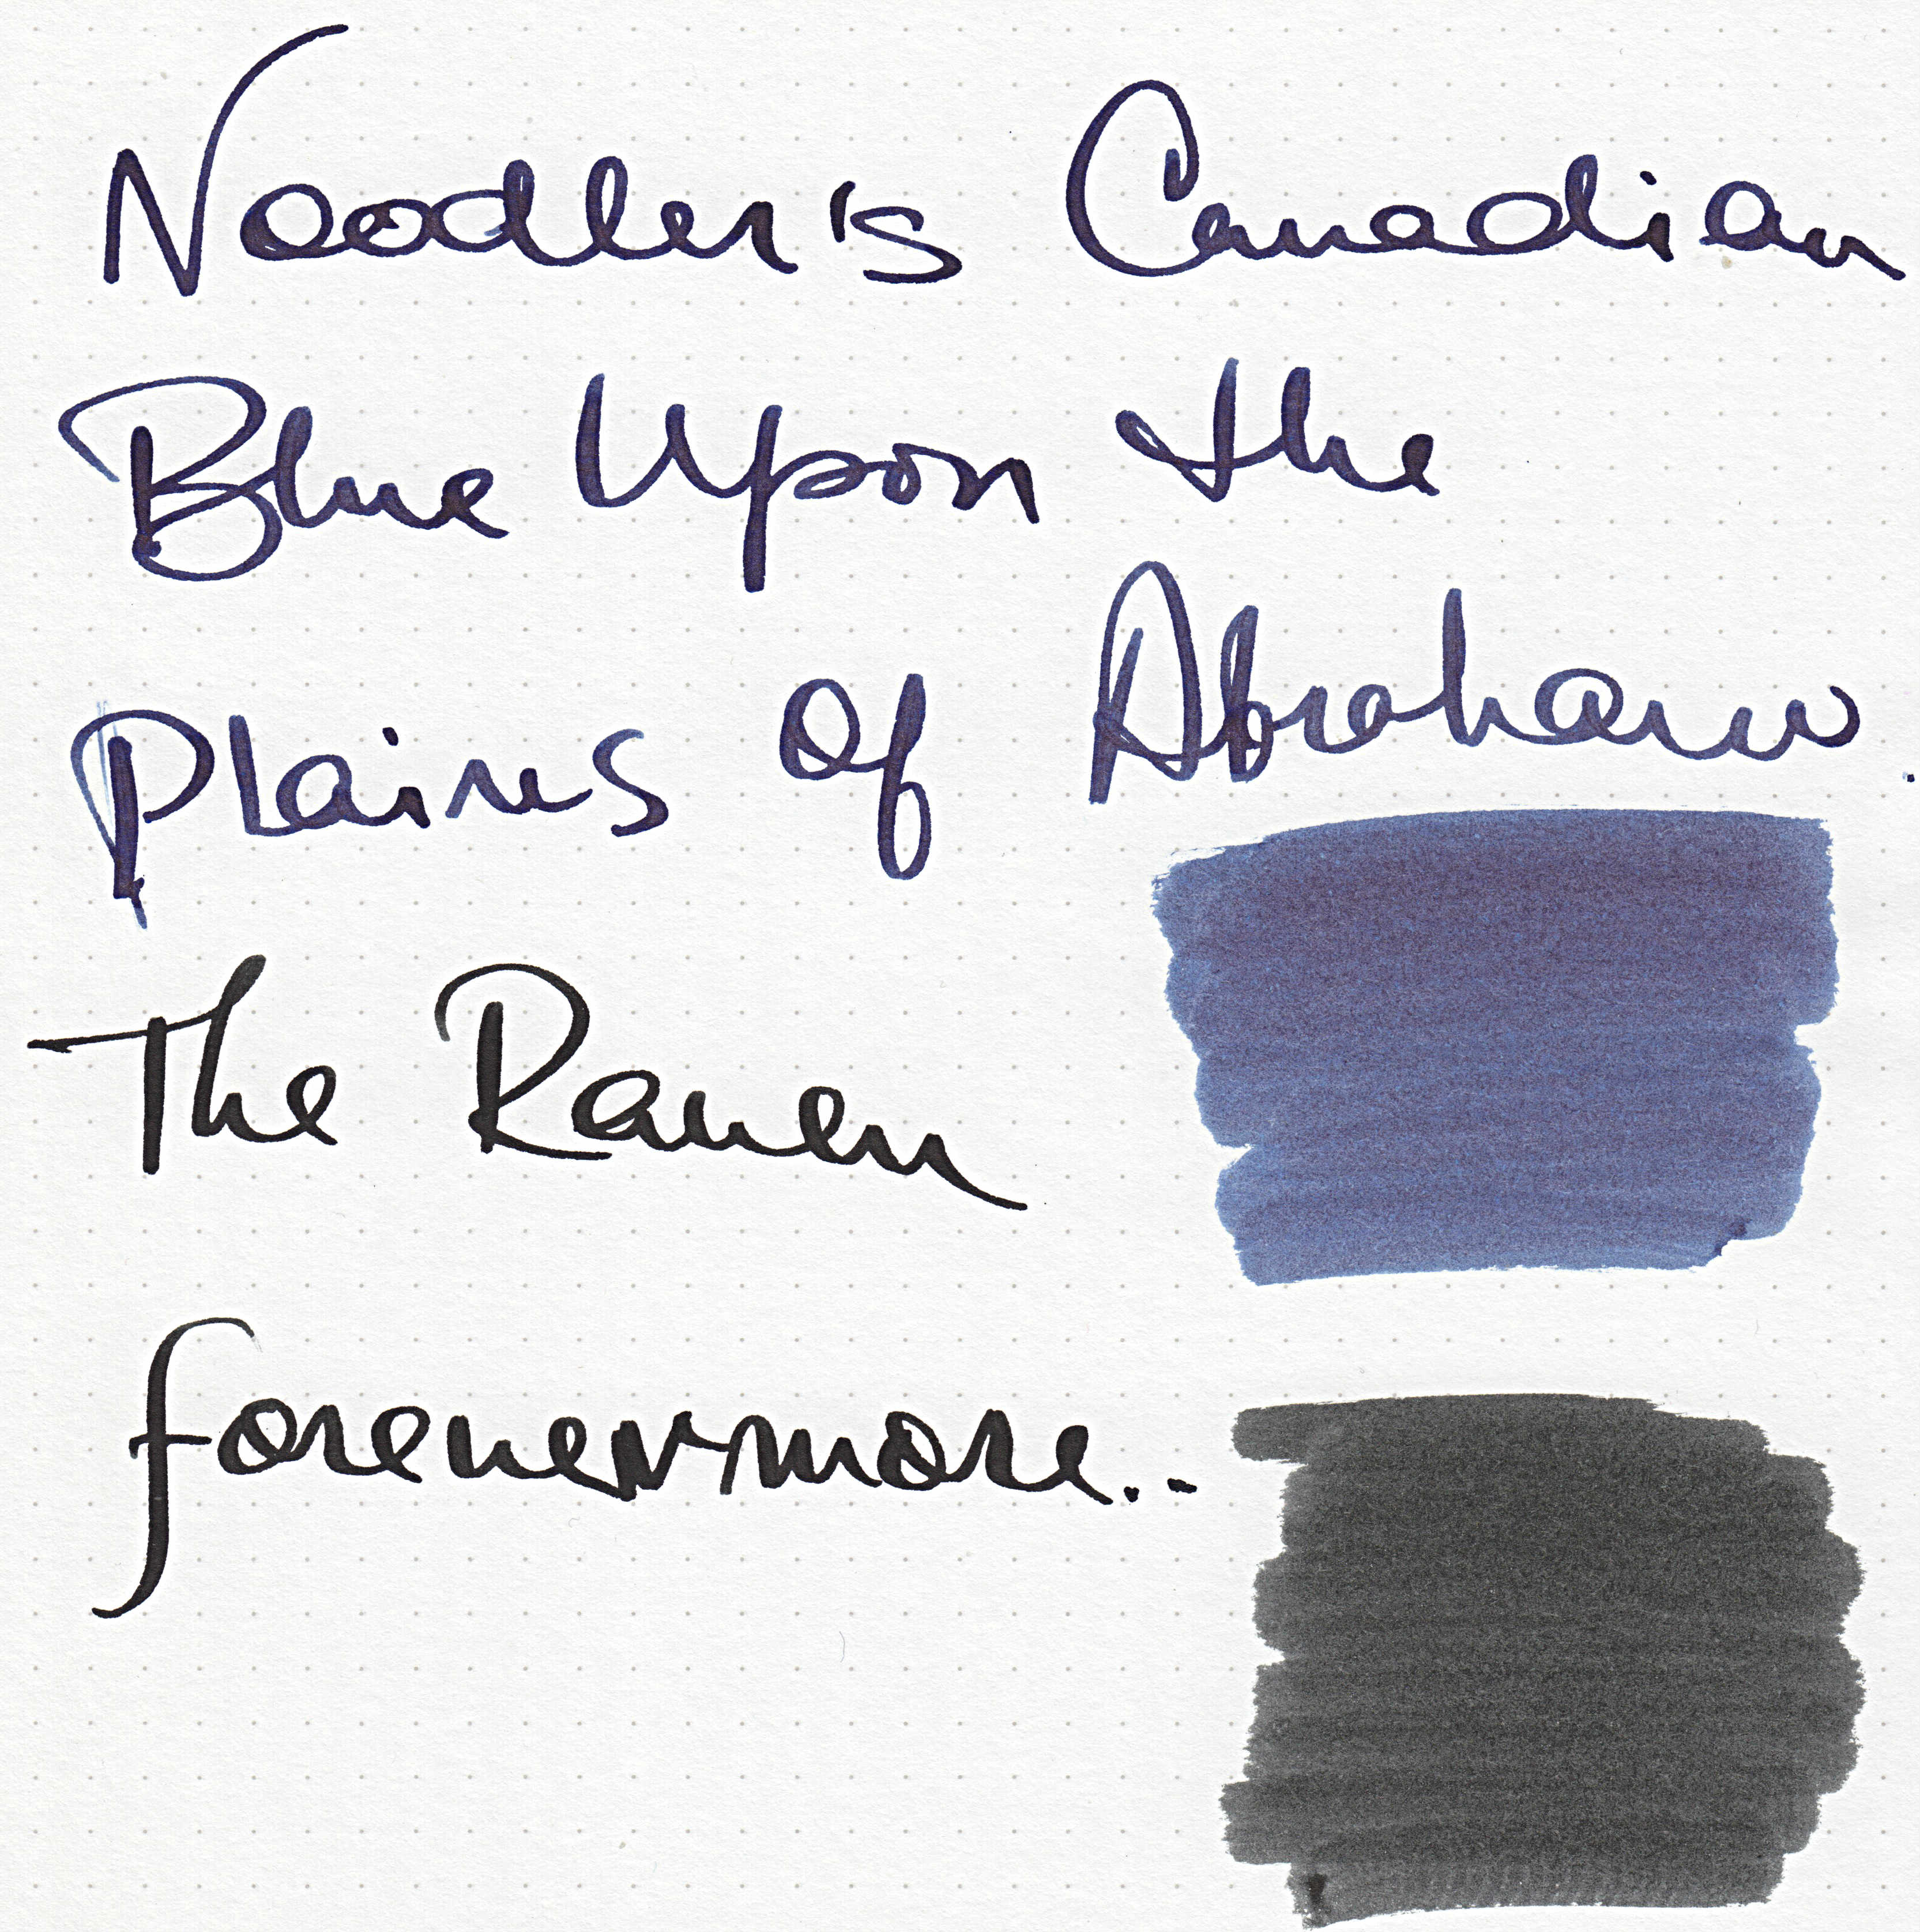 Noodler's Canadian
Blue Upon the
Plains Of Abraham.
The Raven
forevermore..